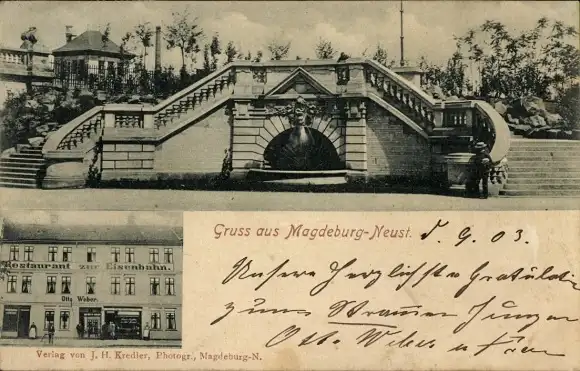 Gruss aus Magdeburg-Neust.
9. 03.
Unsere Herzlichste Gratulatio
zum Strammen Jungen
Otto Weber u Frau
Restaurant zur Eisenbahn.
Otto Weber.
Verlag von J. H. Kredler, Photogr., Magdeburg-N.